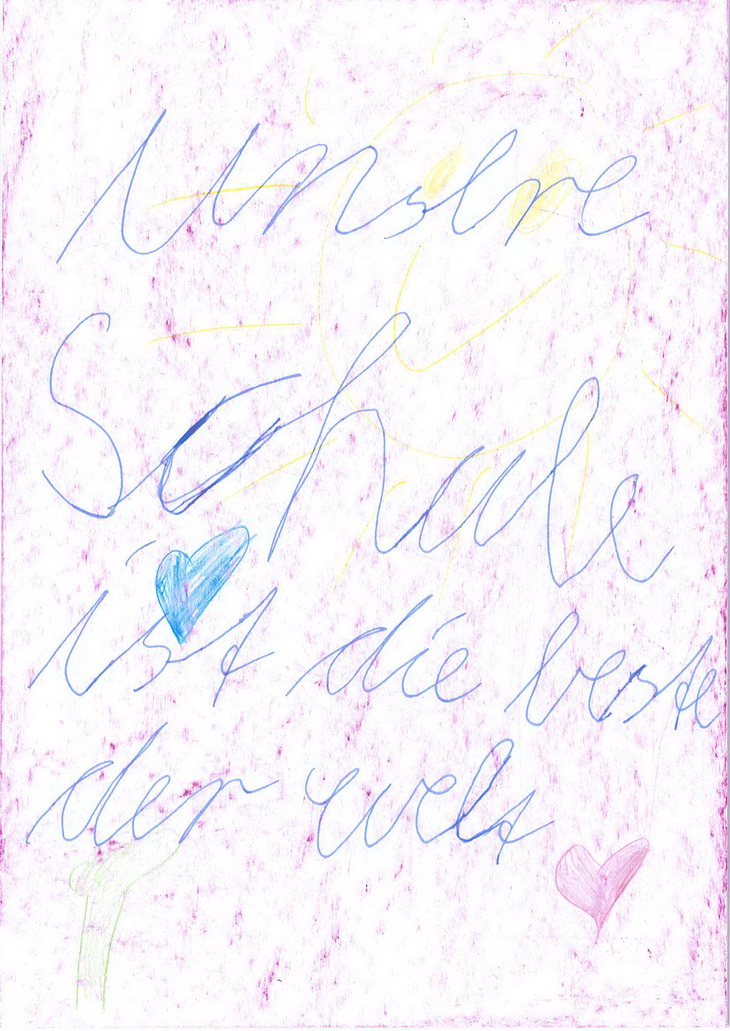 Unsere
Schule
ist die beste
der welt